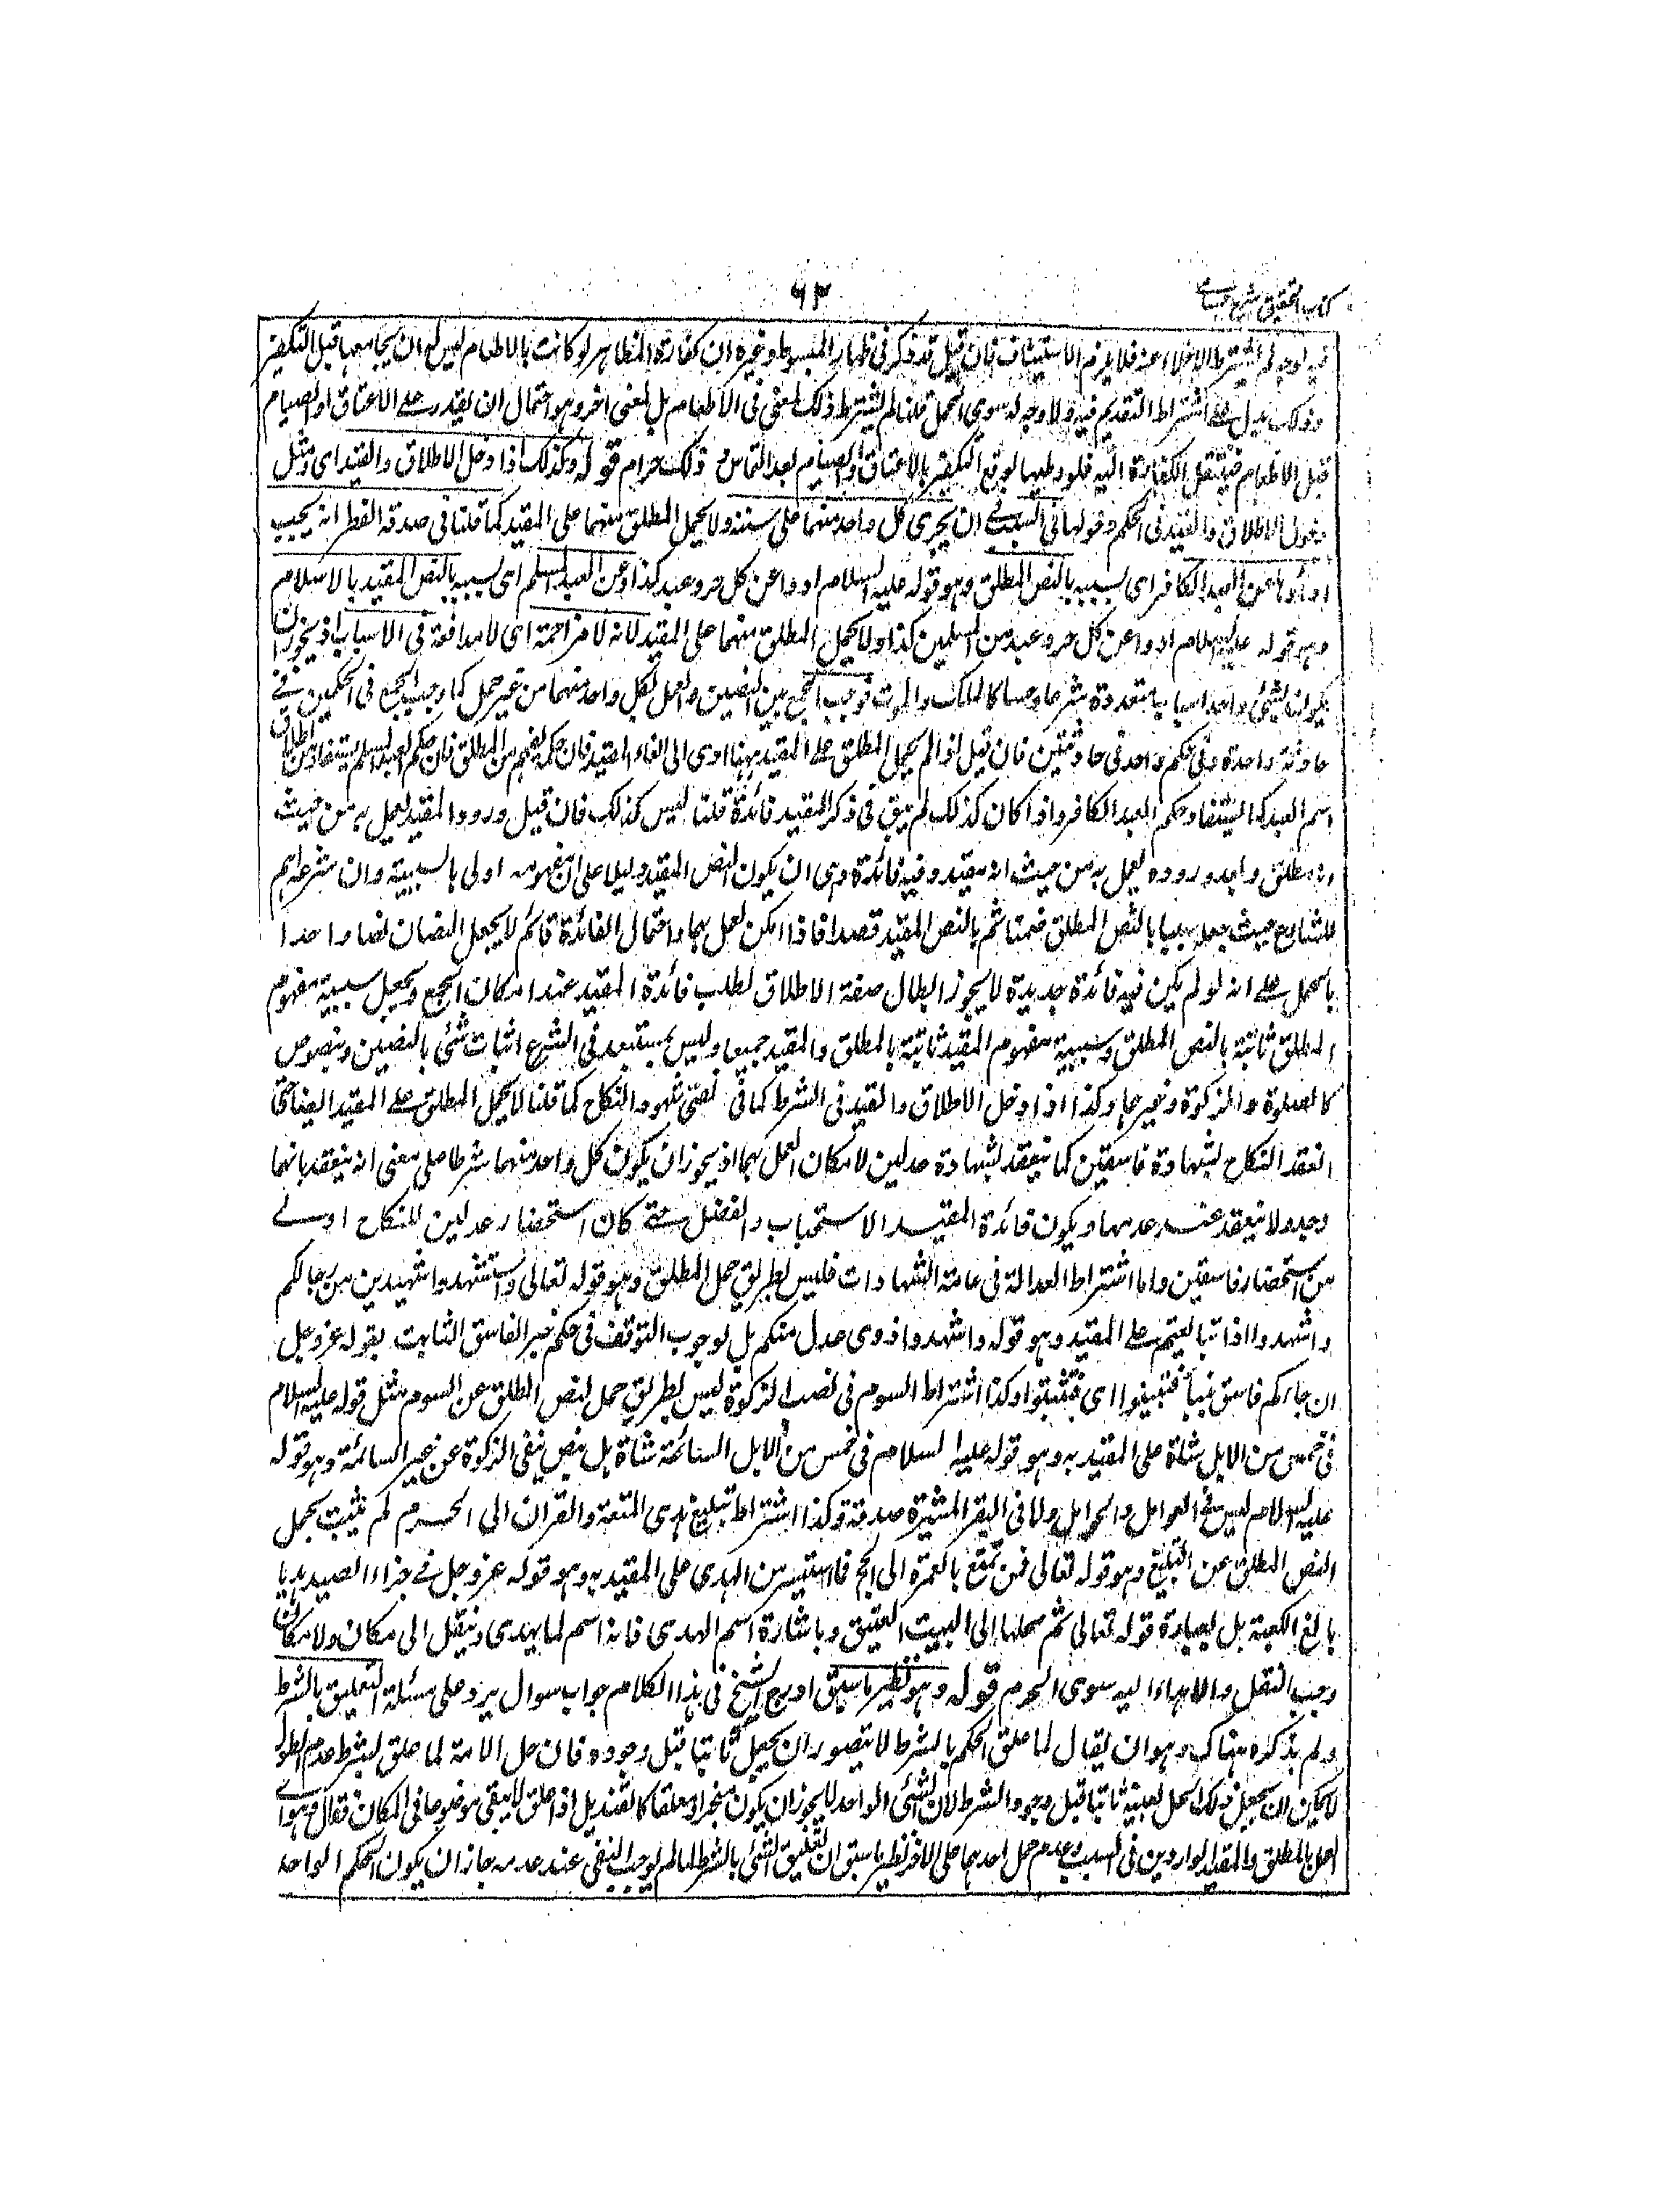 كتاب التحقيق شرح حسامى
٦٢
فيه بوجه لم يشترط الاخلاء عنه فلا يلزم الاستيناف فان قيل قد ذكر فى ظهار المبسوط وغيره ان كفارة المظاهر لو كانت بالاطعام ليس له ان يجامعها قبل التكفير
وذلك يدل على اشتراط التقديم فيه ولا وجه له سوى الحمل قلنا لم يشترط ذلك لمعنى فى الاطعام بل لمعنى اخر وهو احتمال ان يقدر على الاعتاق او الصيام
قبل الاطعام فينتقل الكفارة اليه فلو وطيها لوقع التكفير بالاعتاق او الصيام بعد التماس و ذلك حرام قوله وكذلك اذا دخل الاطلاق والقيد اى ومثل
دخول الاطلاق والقيد فى الحكم دخولهما فى السبب فى ان يجرى كل واحد منهما على سننه ولا يحمل المطلق منهما على المقيد كما قلنا فى صدقة الفطر انه يجب
اداؤها عن العبد الكافر اى بسببه بالنص المطلق وهو قوله عليه السلام ادوا عن كل حر وعبد كذا وعن العبد المسلم اى بسببه بالنص المقيد بالاسلام
وهو قوله عليه السلام ادوا عن كل حر وعبد من المسلمين كذا ولا يحمل المطلق منهما على المقيد لانه لا مزاحمة اى لا مدافعة فى الاسباب اذ يجوز ان
يكون لشئ واحد اسباب متعددة شرعا وحسا كالملك والموت فوجب الجمع بين النصين والعمل بكل واحد منهما من غير حمل كما وجب الجمع فى الحكمين فى
حادثة واحدة وفى حكم واحد فى حادثتين فان قيل اذا لم يحمل المطلق على المقيد ههنا ادى الى الغاء المقيد فان حكمه يفهم من المطلق فان حكم العبد المسلم يستفاد من اطلاق
اسم العبد كما يستفاد حكم العبد الكافر واذا كان كذلك لم يبق فى ذكر المقيد فائدة قلنا ليس كذلك فان قبل ورود المقيد يعمل به من حيث
انه مطلق و بعد وروده يعمل به من حيث انه مقيد وفيه فائدة وهى ان يكون النص المقيد دليلا على ان مفهومه اولى بالسببية وان شرعه اهم
للشارع حيث جعله سببا بالنص المطلق ضمنا ثم بالنص المقيد قصدا فاذا امكن العمل بهما واحتمال الفائدة قائم لا يجعل النصان نصا واحدا
بالحمل على انه لو لم يكن فيه فائدة جديدة لا يجوز ابطال صفة الاطلاق لطلب فائدة المقيد عند امكان الجمع ويجعل سببية مفهوم
المطلق ثابتة بالنص المطلق وسببية مفهوم المقيد ثابتة بالمطلق والمقيد جميعا وليس بمستبعد فى الشرع اثبات شئ بالنصين ونصوص
كالصلوة والزكوة وغيرهما وكذا اذا دخل الاطلاق والقيد فى الشرط كما فى نصى شهود النكاح كما قلنا لا يحمل المطلق على المقيد ايضا حتى
انعقد النكاح بشهادة فاسقين كما ينعقد بشهادة عدلين لامكان العمل بهما اذ يجوز ان يكون كل واحد منهما شرطا على معنى انه ينعقد بايهما
وجد ولا ينعقد عند عدمهما ويكون فائدة المقيد الاستحباب والفضل حتى كان استحضار عدلين للنكاح اولى
من استحضار فاسقين واما اشتراط العدالة فى عامة الشهادات فليس بطريق حمل المطلق وهو قوله تعالى واستشهدوا شهيدين من رجالكم
واشهدوا اذا تبايعتم على المقيد وهو قوله واشهدوا ذوى عدل منكم بل لوجوب التوقف فى حكم خبر الفاسق الثابت بقوله عز وجل
ان جاءكم فاسق بنبأ فتبينوا اى فتثبتوا وكذا اشتراط السوم فى نصاب الزكوة ليس بطريق حمل النص المطلق عن السوم مثل قوله عليه السلام
فى خمس من الابل شاة على المقيد به وهو قوله عليه السلام فى خمس من الابل السائمة شاة بل بنص ينفى الزكوة عن غير السائمة وهو قوله
عليه السلام ليس فى العوامل والحوامل ولا فى البقر المثيرة صدقة وكذا اشتراط تبليغ هدى المتعة والقران الى الحرم لم يثبت بحمل
النص المطلق عن التبليغ وهو قوله تعالى فمن تمتع بالعمرة الى الحج فما استيسر من الهدى على المقيد به وهو قوله عز وجل فى جزاء الصيد هديا
بالغ الكعبة بل بعبارة قوله تعالى ثم محلها الى البيت العتيق وباشارة اسم الهدى فانه اسم لما يهدى وينقل الى مكان ولا مكان
وجب النقل والاهداء اليه سوى الحرم قوله وهو نظير ما سبق ادرج الشيخ فى هذا الكلام جواب سوال يرد على مسئلة التعليق بالشرط
ولم يذكره هناك وهو ان يقال لما علق الحكم بالشرط لا يتصور ان يجعل ثابتا قبل وجوده فان حل الامة لما علق بشرط عدم الطول
لا يمكن ان يجعل ذلك الحل بعينه ثابتا قبل وجود الشرط لان الشئ الواحد لا يجوز ان يكون منجزا ومعلقا كالقنديل اذا علق لا يبقى موضوعا فى المكان فقال وهو اى
العمل بالمطلق والمقيد الواردين فى السبب وعدم حمل احدهما على الاخر نظير ما سبق ان تعليق الشئ بالشرط لما لم يوجب النفى عند عدمه جاز ان يكون الحكم الواحد